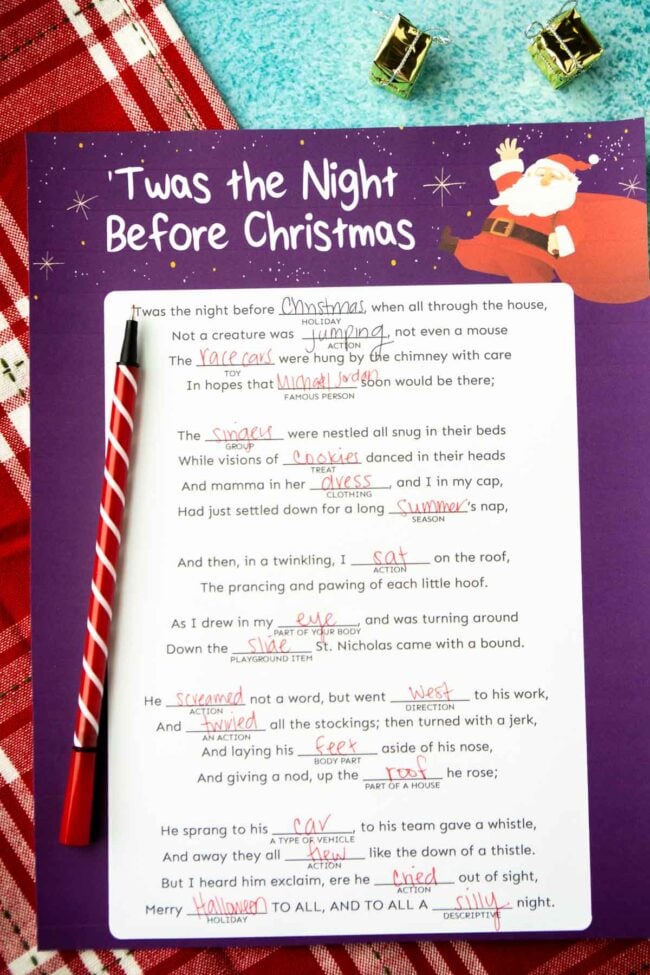 'Twas the Night
Before Christmas
Twas the night before Christmas, when all through the house,
HOLIDAY
Not a creature was jumping, not even a mouse
ACTION
The racecars were hung by the chimney with care
TOY
In hopes that Michael Jordan soon would be there;
FAMOUS PERSON
The singers were nestled all snug in their beds
GROUP
While visions of cookies danced in their heads
TREAT
And mamma in her dress, and I in my cap,
CLOTHING
Had just settled down for a long summer's nap,
SEASON
And then, in a twinkling, I sat on the roof,
ACTION
The prancing and pawing of each little hoof.
As I drew in my eye, and was turning around
PART OF YOUR BODY
Down the slide St. Nicholas came with a bound.
PLAYGROUND ITEM
He screamed not a word, but went west to his work,
ACTION DIRECTION
And twirled all the stockings; then turned with a jerk,
AN ACTION
And laying his feet aside of his nose,
BODY PART
And giving a nod, up the roof he rose;
PART OF A HOUSE
He sprang to his car, to his team gave a whistle,
A TYPE OF VEHICLE
And away they all flew like the down of a thistle.
ACTION
But I heard him exclaim, ere he cried out of sight,
ACTION
Merry Halloween TO ALL, AND TO ALL A silly night.
HOLIDAY DESCRIPTIVE